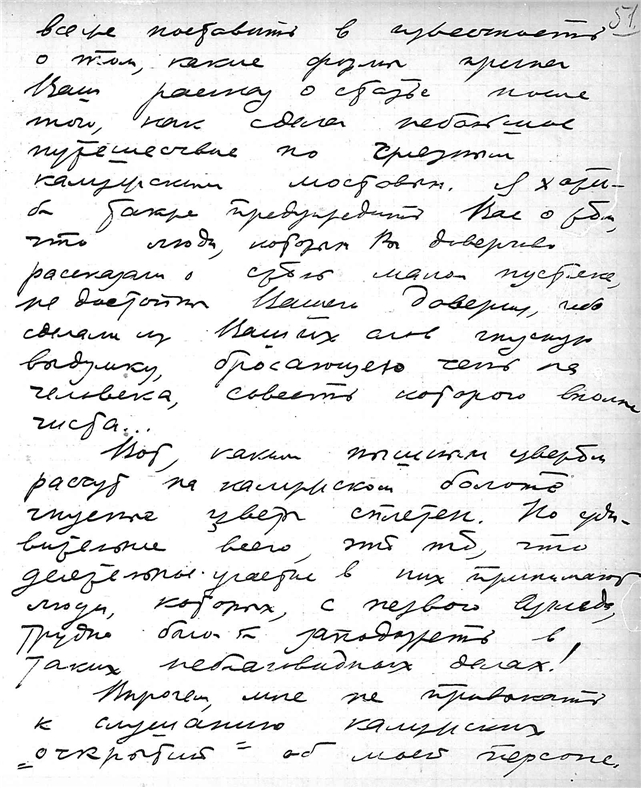 51.
все же поставить в известность
о том, какие формы принял
Ваш рассказ о статье после
того, как сделал небольшое
путешествие по грязным
калужским мостовым. Я хотел
бы также предупредить Вас о том,
что люди, которым Вы доверчиво
рассказали о столь малом пустяке,
не достойны Вашего доверия, ибо
сделали из Ваших слов гнусную
выдумку, бросающую тень на
человека, совесть которого вполне
чиста...
Вот, каким пышным цветом
растут на калужском болоте
гнусные цветы сплетен. Но уди-
вительнее всего, это то, что
деятельное участие в них принимают
люди, которых, с первого взгляда,
трудно было б заподозреть в
таких неблаговидных делах!
Впрочем, мне не привыкать
к слушанию калужских
„открытий" об моей персоне.